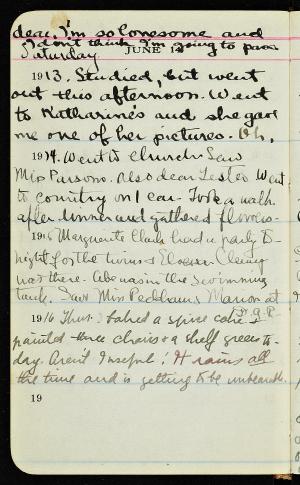 dear, I'm so lonesome and
I don't think I'm going to pass
Saturday. JUNE 14
1913. Studied, but went
out this afternoon. Went
to Katharine's and she gave
me one of her pictures. Oh,
1914. Went to church. Saw
Miss Parsons. Also dear Lester. Went
to country in 1 car. Took a walk
after dinner and gathered flowers.
1915 Marguerite Clark had a party to-
night for the twins & Eleanor
was there. Abe was in the swimming
tank. Saw Miss Peckham & Marion at
F.G.P.
1916 Thur. I baked a spice cake &
painted three chairs & a shelf green to-
day. Aren't I useful! It rains all
the time and is getting to be unbearable.
19